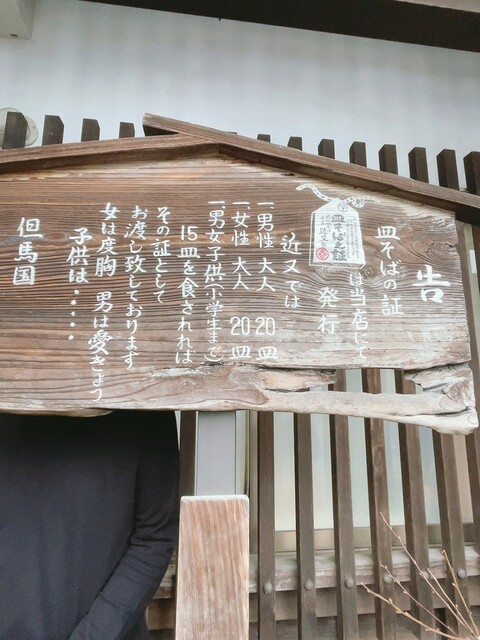 告
皿そばの証
は当店にて
皿そば之証
発行
近又では
一、男性 大人 20皿
一、女性 大人 20皿
一、男女子供(小学生まで)
15皿を食されれば
その証として
お渡し致しております
女は度胸 男は愛きょう
子供は・・・・・
但馬国